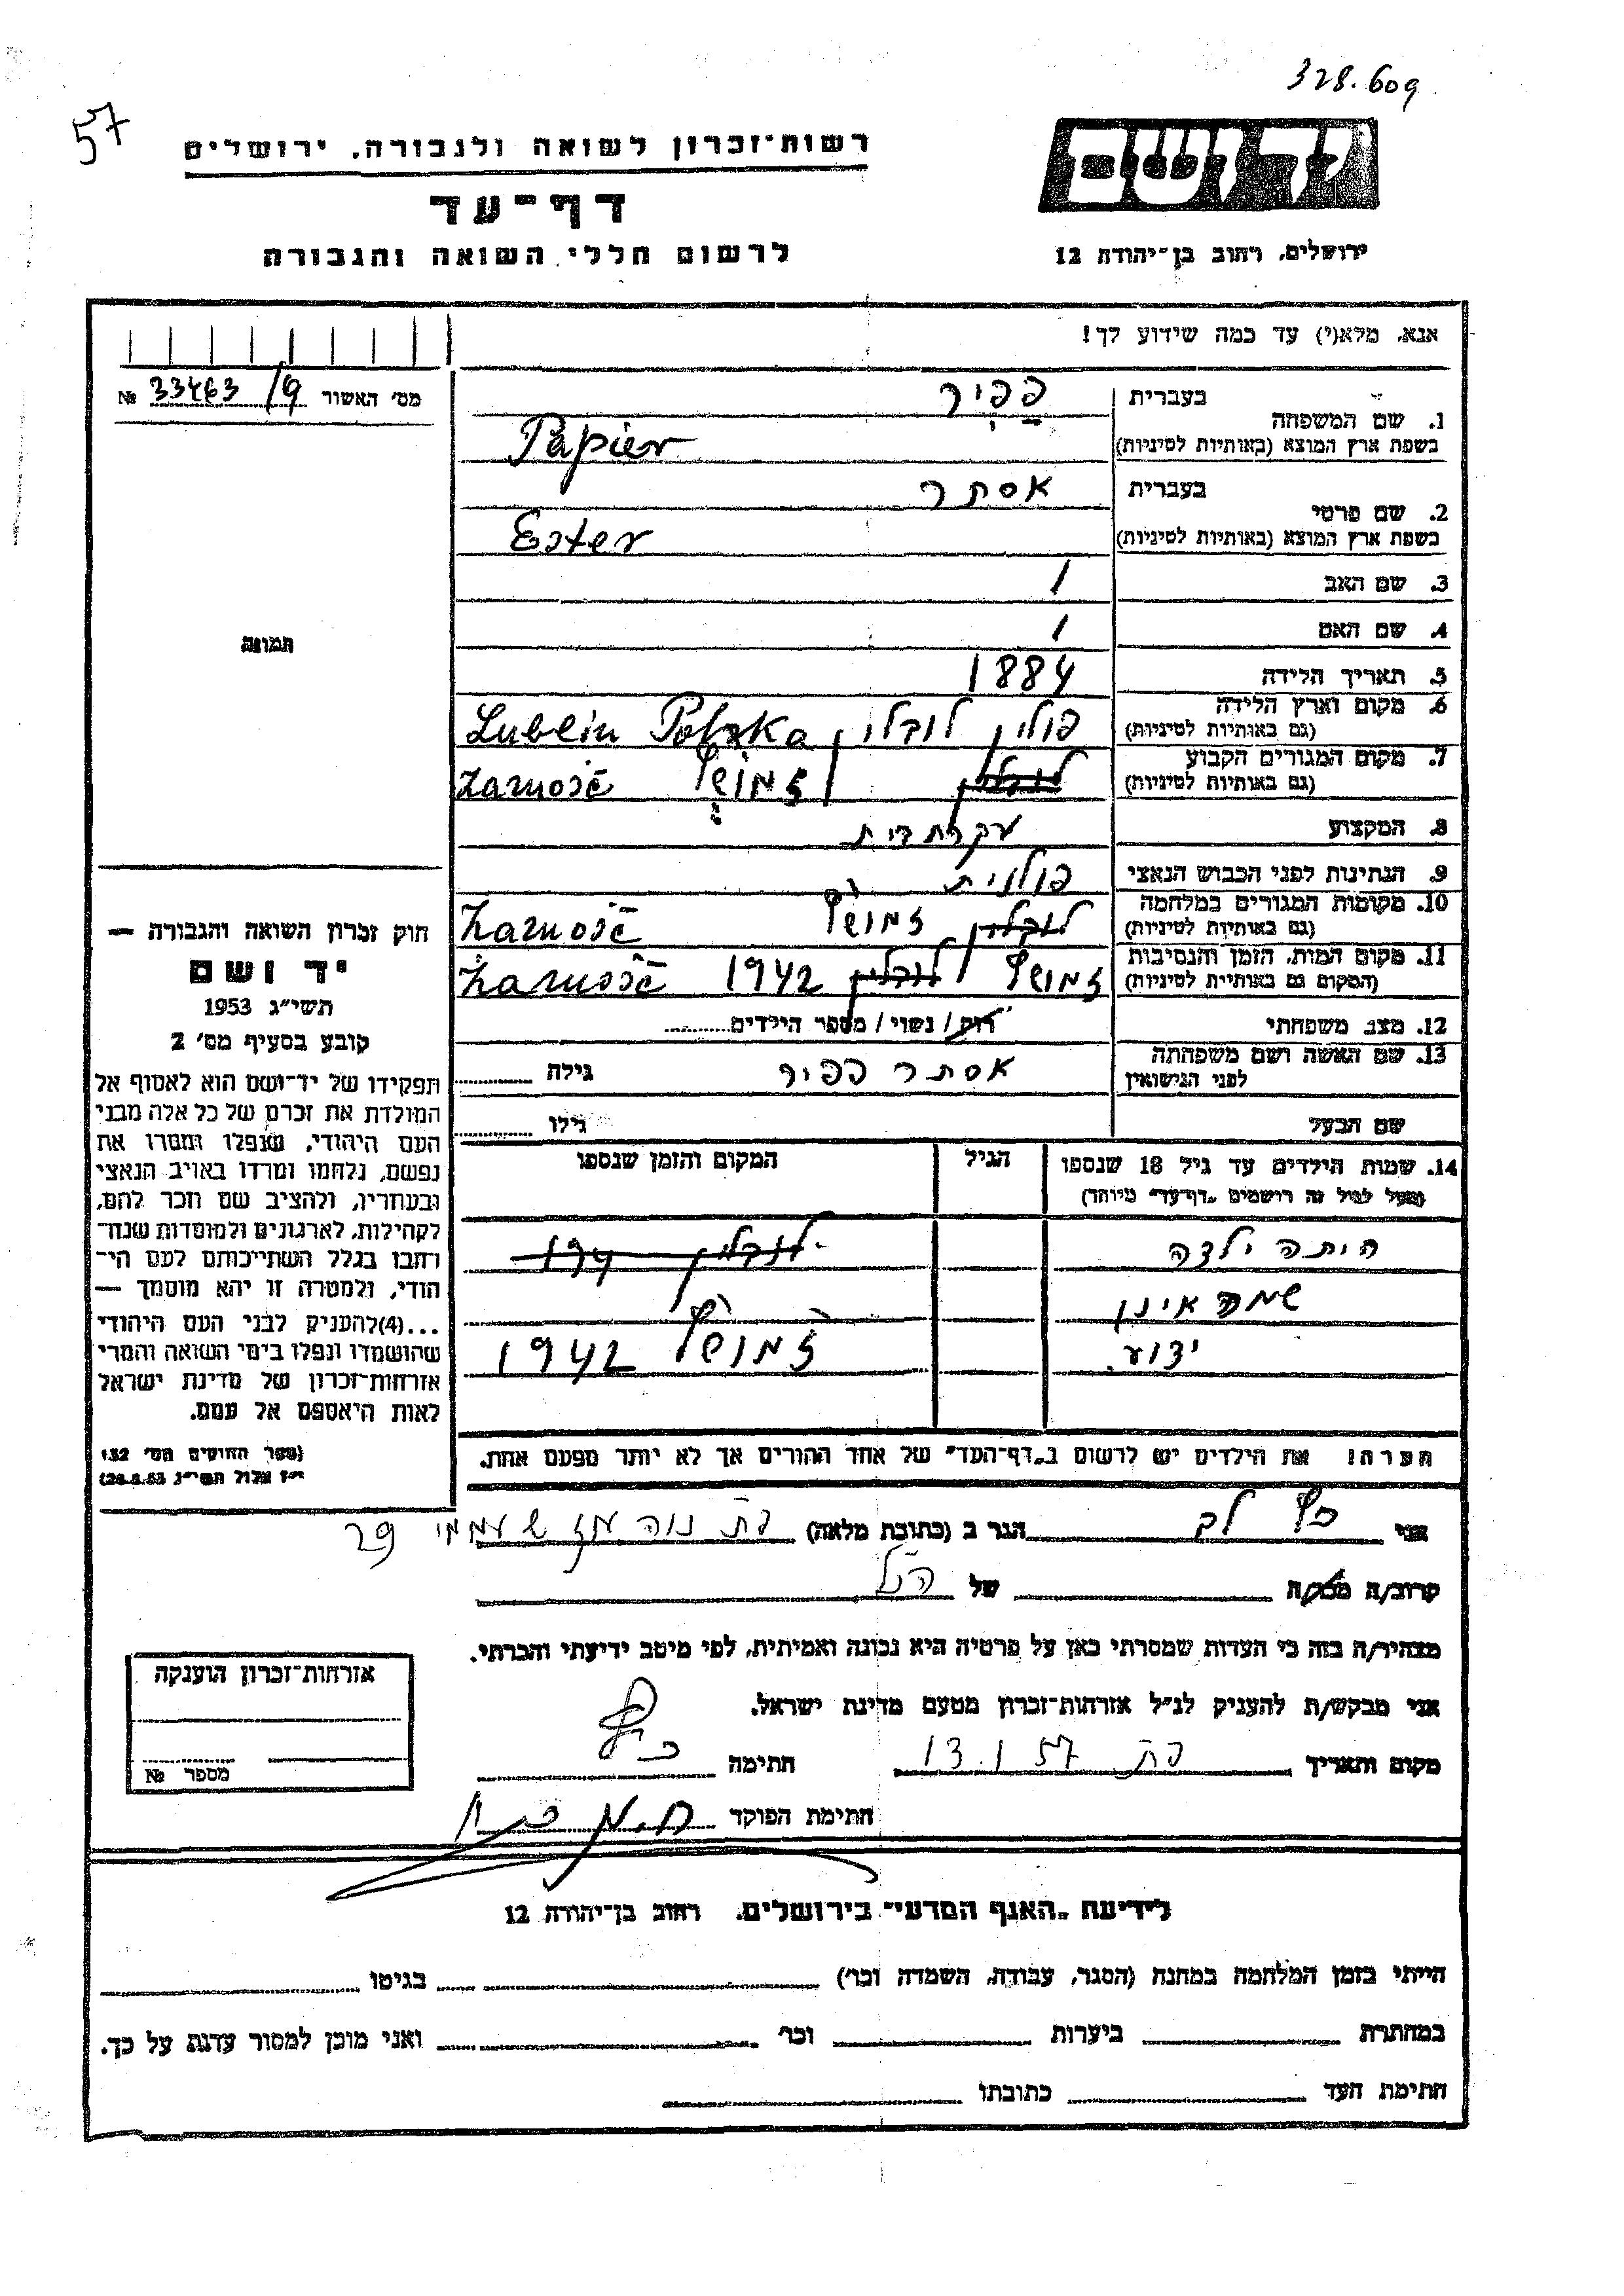 328.609
57
יד ושם
רשות־זכרון לשואה ולגבורה, ירושלים
דף־עד
לרשום חללי השואה והגבורה
ירושלים, רחוב בן־יהודה 12
אנא, מלא(י) עד כמה שידוע לך!
מס' האשור № 33463/9
1. שם המשפחה
בעברית פפיר
בשפת ארץ המוצא (באותיות לטיניות) Papier
2. שם פרטי
בעברית אסתר
בשפת ארץ המוצא (באותיות לטיניות) Ester
3. שם האב /
4. שם האם /
תמונה
5. תאריך הלידה 1884
6. מקום וארץ הלידה
(גם באותיות לטיניות) פולין לובלין Lublin Polska
7. מקום המגורים הקבוע
(גם באותיות לטיניות) לובלין זמושץ Zamość
8. המקצוע עקרת בית
9. הנתינות לפני הכבוש הנאצי פולנית
10. מקומות המגורים במלחמה
(גם באותיות לטיניות) לובלין זמושץ Zamość
11. מקום המות, הזמן והנסיבות
(המקום גם באותיות לטיניות) זמושץ לובלין 1942 Zamość
12. מצב משפחתי רווק / נשוי / מספר הילדים
13. שם האשה ושם משפחתה
לפני הנישואין אסתר פפיר גילה
שם הבעל גילו
14. שמות הילדים עד גיל 18 שנספו
(מעל לגיל זה רושמים "דף־עד" מיוחד)
הגיל
המקום והזמן שנספו
היתה ילדה לובלין 194
שמה אינו
ידוע. זמושץ 1942
הערה! את הילדים יש לרשום ב"דף־העד" של אחד ההורים אך לא יותר מפעם אחת.
חוק זכרון השואה והגבורה —
יד ושם
תשי"ג 1953
קובע בסעיף מס' 2
תפקידו של יד־ושם הוא לאסוף אל
המולדת את זכרם של כל אלה מבני
העם היהודי, שנפלו ומסרו את
נפשם, נלחמו ומרדו באויב הנאצי
ובעוזריו, ולהציב שם וזכר להם,
לקהילות, לארגונים ולמוסדות שנח־
רבו בגלל השתייכותם לעם הי־
הודי, ולמטרה זו יהא מוסמך —
...(4) להעניק לבני העם היהודי
שהושמדו ונפלו בימי השואה והמרי
אזרחות־זכרון של מדינת ישראל
לאות היאספם אל עמם.
(ספר החוקים מס' 132
י"ז אלול תשי"ג 28.8.53)
אני כץ לב הגר ב (כתובת מלאה) פת נוה עוז שעממי 29
קרוב/ה מכר/ה של הנ"ל
מצהיר/ה בזה כי העדות שמסרתי כאן על פרטיה היא נכונה ואמיתית, לפי מיטב ידיעתי והכרתי.
אני מבקש/ת להעניק לנ"ל אזרחות־זכרון מטעם מדינת ישראל.
מקום ותאריך פת 13.1.57 חתימה כץ
חתימת הפוקד
אזרחות־זכרון הוענקה
מספר №
לידיעת "האגף המדעי" בירושלים, רחוב בן־יהודה 12
הייתי בזמן המלחמה במחנה (הסגר, עבודה, השמדה וכו') בגיטו
במחתרת ביערות וכו' ואני מוכן למסור עדות על כך.
חתימת העד כתובתו